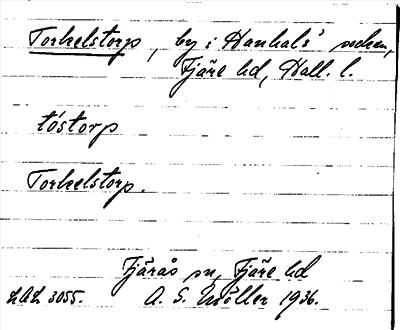 Torkelstorp, by i Hanhals socken,
Fjäre hd, Hall. l.
tóstorp
Torkelstorp.
Fjärås sn, Fjäre hd
3055. A. S. Möller 1936.